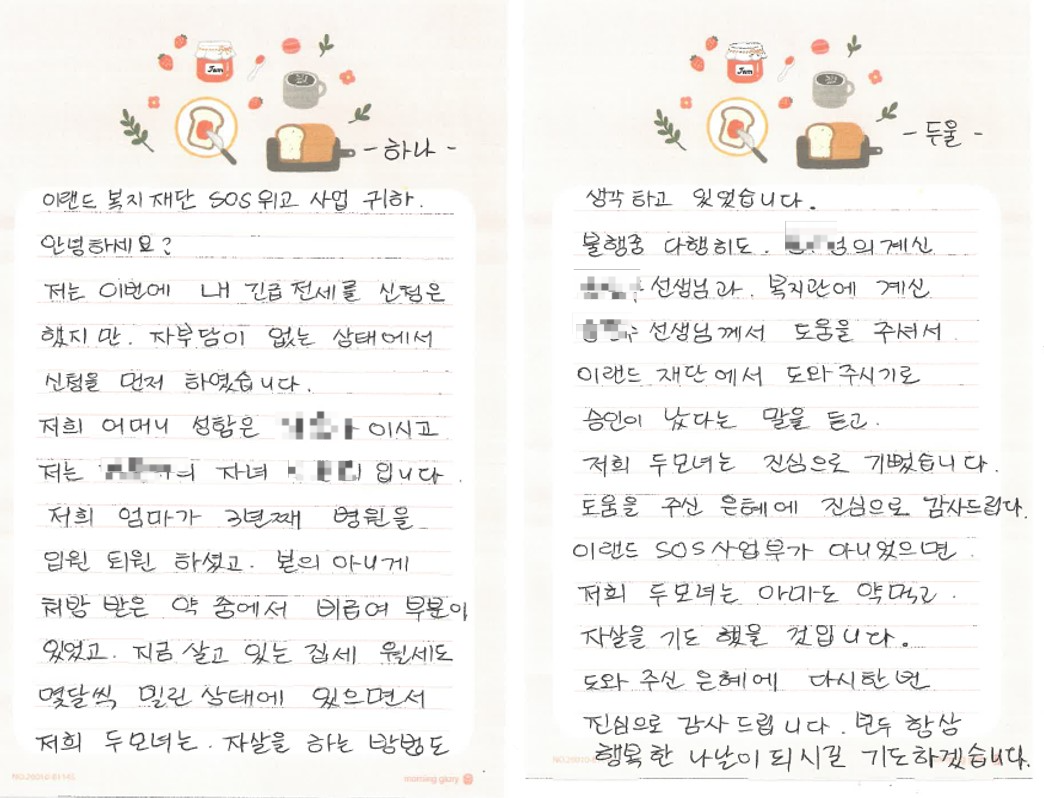 Jam
- 하나 -
이랜드 복지 재단 SOS 위고 사업 귀하.
안녕하세요?
저는 이번에 내 긴급 전세를 신청은
했지만. 자부담이 없는 상태에서
신청을 먼저 하였습니다.
저희 어머니 성함은 이시고
저는 의 자녀 입니다.
저희 엄마가 3년째 병원을
입원 퇴원 하셨고. 본의 아니게
처방 받은 약 중에서 비급여 부분이
있었고. 지금 살고 있는 집세 월세도
몇달씩 밀린 상태에 있으면서
저희 두모녀는. 자살을 하는 방법도
morning glory
Jam
- 두울 -
생각하고 있었습니다.
불행중 다행히도. 의계신
선생님과. 복지관에 계신
선생님께서 도움을 주셔서
이랜드 재단에서 도와주시기로
승인이 났다는 말을 듣고.
저희 두모녀는 진심으로 기뻤습니다.
도움을 주신 은혜에 진심으로 감사드립다.
이랜드 SOS사업부가 아니었으면.
저희 두모녀는 아마도 약먹고.
자살을 기도 했을 것입니다.
도와 주신 은혜에 다시한번
진심으로 감사드립니다. 모두 항상
행복한 나날이 되시길 기도하겠습니다.